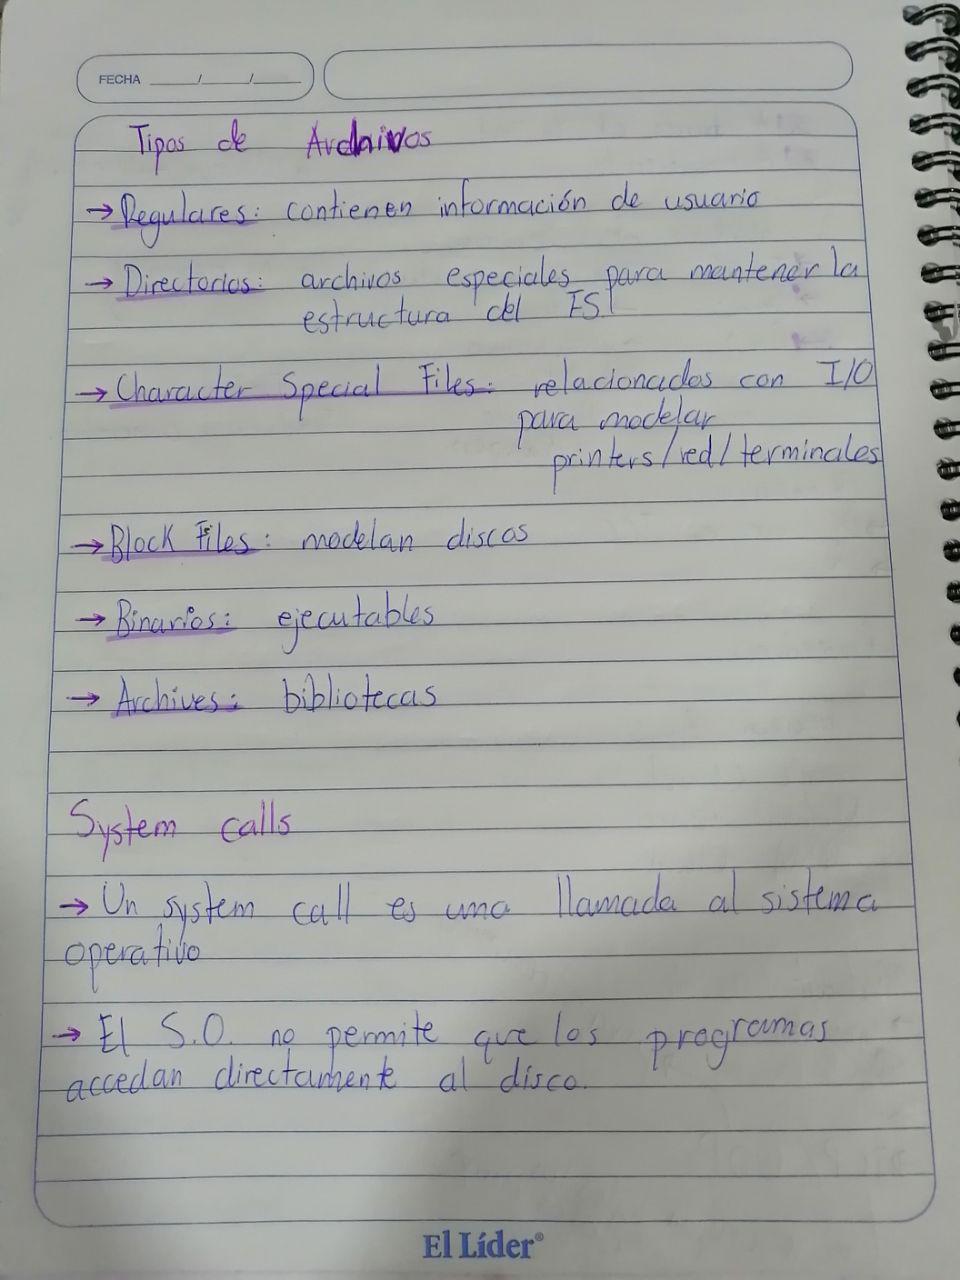 FECHA ____/____/____
Tipos de Archivos
→ Regulares: contienen información de usuario
→ Directorios: archivos especiales para mantener la
estructura del FS
→ Character Special Files: relacionados con I/O
para modelar
printers/red/terminales
→ Block Files: modelan discos
→ Binarios: ejecutables
→ Archives: bibliotecas
System calls
→ Un system call es una llamada al sistema
operativo
→ El S.O. no permite que los programas
accedan directamente al disco.
El Líder®